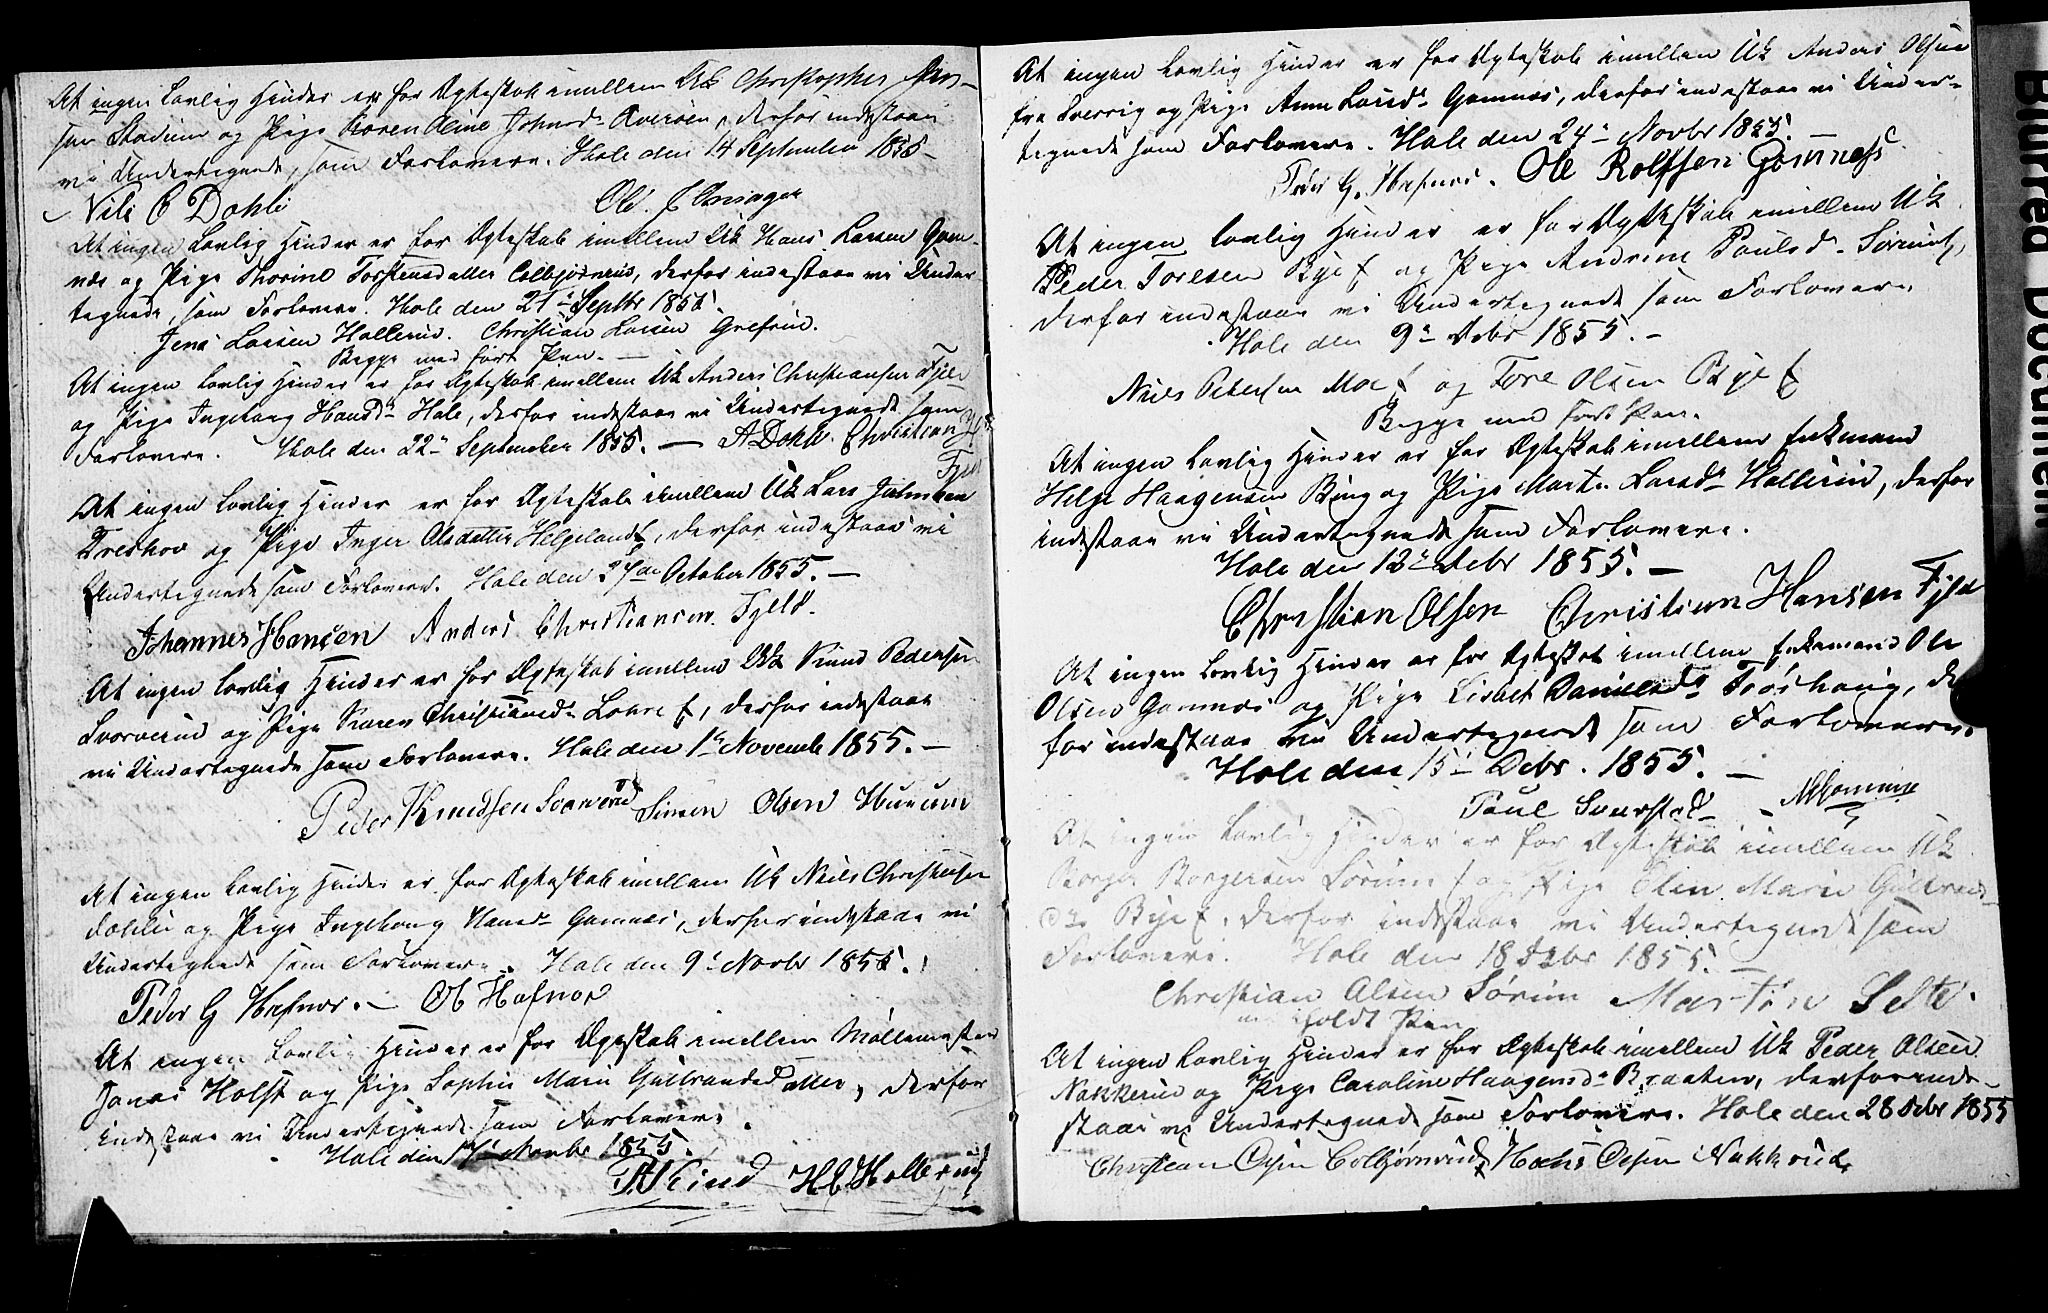 At ingen lovlig Hinder er for Ægteskab imellem Uk Christopher
sen Stadium og Pige Karen Oline Johnsd. Averøen, derfor indestaae
vi Undertegnede, som Forlovere. Hole den 14 September 1855
Nils C Dohli Ole
At ingen lovlig Hinder er for Ægteskab imellem Uk Hans Larsen Gom-
næs og Pige Thorine Torstensdatter Colbjørnrud, derfor indestaae vi Under
tegnede, som Forlovere. Hole den 21de Septbr 1855.
Jens Larsen Hollerud. Christian Larsen Grefsrud.
Begge med ført Pen.
At ingen lovlig Hinder er for Ægteskab imellem Uk Anders Christiansen Fjeld
og Pige Ingeborg Hansd. Hole, derfor indestaae vi Undertegnede som
Forlovere. Hole den 22de September 1855. — A Dohli. Christian
Fjeld
At ingen lovlig Hinder er for Ægteskab imellem Uk Lars Johnsen
Treskov og Pige Inger Olsdatter Helgeland, derfor indestaae vi
Undertegnede som Forlovere. Hole den October 1855. —
Johannes Hansen Anders Christiansen Fjeld.
At ingen lovlig Hinder er for Ægteskab imellem Uk Knud Pedersen
Svarverud og Pige Karen Christiansd. Lohre, derfor indestaae
vi Undertegnede som Forlovere. Hole den 1te November 1855. —
Peder Knudsen Svarverud Simen Olsen Hurum
At ingen lovlig Hinder er for Ægteskab imellem Uk Niels Christensen
Dohlie og Pige Ingeborg Hansd. Gomnæs, derfor indestaae vi
Undertegnede som Forlovere. Hole den 9de Novbr 1855.
Peder G Hæsnæs. — Hafnor
At ingen lovlig Hinder er for Ægteskab imellem Møllemester
Jonas Holst og Pige Sophie Marie Gulbrandsdatter, derfor
indestaae vi Undertegnede som Forlovere.
Hole den Novbr 1855.
Kind Hollerud
At ingen lovlig Hinder er for Ægteskab imellem Uk Anders Olsen
fra Sverrig og Pige Anne Larsd. Gomnæs, derfor indestaae vi Under-
tegnede som Forlovere. Hole den 24de Novbr 1855. —
Peder G. Hæsnæs. Ole Rolfsen Gomnæs
At ingen lovlig Hinder er for Ægteskab imellem Uk
Peder Toresen Bye og Pige Andrine Paulsd. Sørum,
derfor indestaae vi Undertegnede som Forlovere.
Hole den 9de Debr 1855. —
Niels Petersen Moe og Tore Olsen Bye
Begge med ført Pen.
At ingen lovlig Hinder er for Ægteskab imellem Enkemand
Helge Haagensen Bing og Pige Marte Larsd. Hollerud, derfor
indestaae vi Undertegnede som Forlovere.
Hole den 12te Debr 1855. —
Christian Olsen Christian Hansen Fjeld
At ingen lovlig Hinder er for Ægteskab imellem Enkemand Ole
Olsen Gomnæs og Pige Lisbet Danielsd. Trøshaug, der
for indestaae vi Undertegnede som Forlovere.
Hole den 15de Debr. 1855. —
Paul Svarstad
At ingen lovlig Hinder er for Ægteskab imellem Uk
Borger Borgersen Sørum og Pige Elen Marie Gulbrands
d. Bye, derfor indestaae vi Undertegnede som
Forlovere. Hole den 18 Debr 1855. —
Christian Olsen Sørum Martin Selte.
med holdt Pen
At ingen lovlig Hinder er for Ægteskab imellem Uk Peder Olsen
Nakkerud og Pige Caroline Haagensd. Braaten, derfor inde-
staae vi Undertegnede som Forlovere. Hole den 28 Debr 1855
Christian Olsen Colbjørnrud Hans Olsen Nakkerud.
Blurred Document